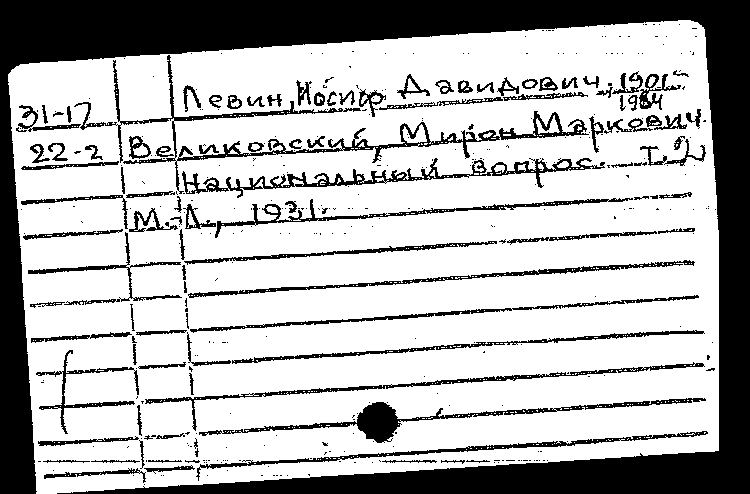 Левин, Иосиф Давидович, 1901-
1984
31-17
22-2 Великовский, Мирон Маркович.
Национальный вопрос. т. 2
М.-Л., 1931.